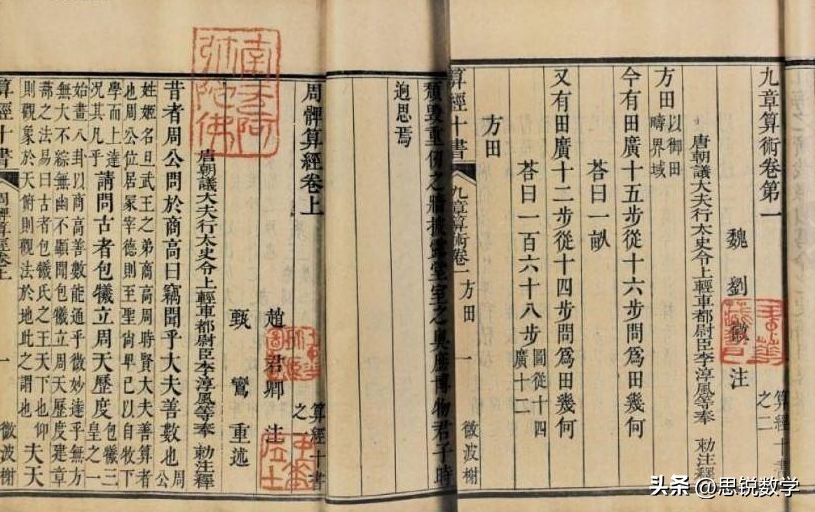 九章算術卷第一 算經十書之二
魏 劉徽 注
唐朝議大夫行太史令上輕車都尉臣李淳風等奉 敕注釋
方田 以御田疇界域
今有田廣十五步從十六步問爲田幾何
荅曰一畝
又有田廣十二步從十四步問爲田幾何
荅曰一百六十八步 圖從十四廣十二
方田
算經十書 九章算術卷一 方田 一 微波榭
之牆披露堂室之奧應博物君子時
迥思焉
周髀算經卷上 算經十書之一
趙君卿 注
甄鸞 重述
唐朝議大夫行太史令上輕車都尉臣李淳風等奉 敕注釋
昔者周公問於商高曰竊聞乎大夫善數也 周公
姓姬名旦武王之弟商高周時賢大夫善算者
也周公位居冢宰德則至聖尚卑已以自牧下
學而上達況其凡乎 請問古者包犧立周天歷度 包犧三皇之一
始畫八卦以商高善數能通乎微妙達乎無方
無大不綜無幽不顯聞包犧立周天歷度建章
蔀之法易曰古者包犧氏之王天下也仰
則觀象於天俯則觀法於地此之謂也 夫天
算經十書 周髀算經卷上 一 微波榭
南无阿弥陀佛
头条 @思锐数学